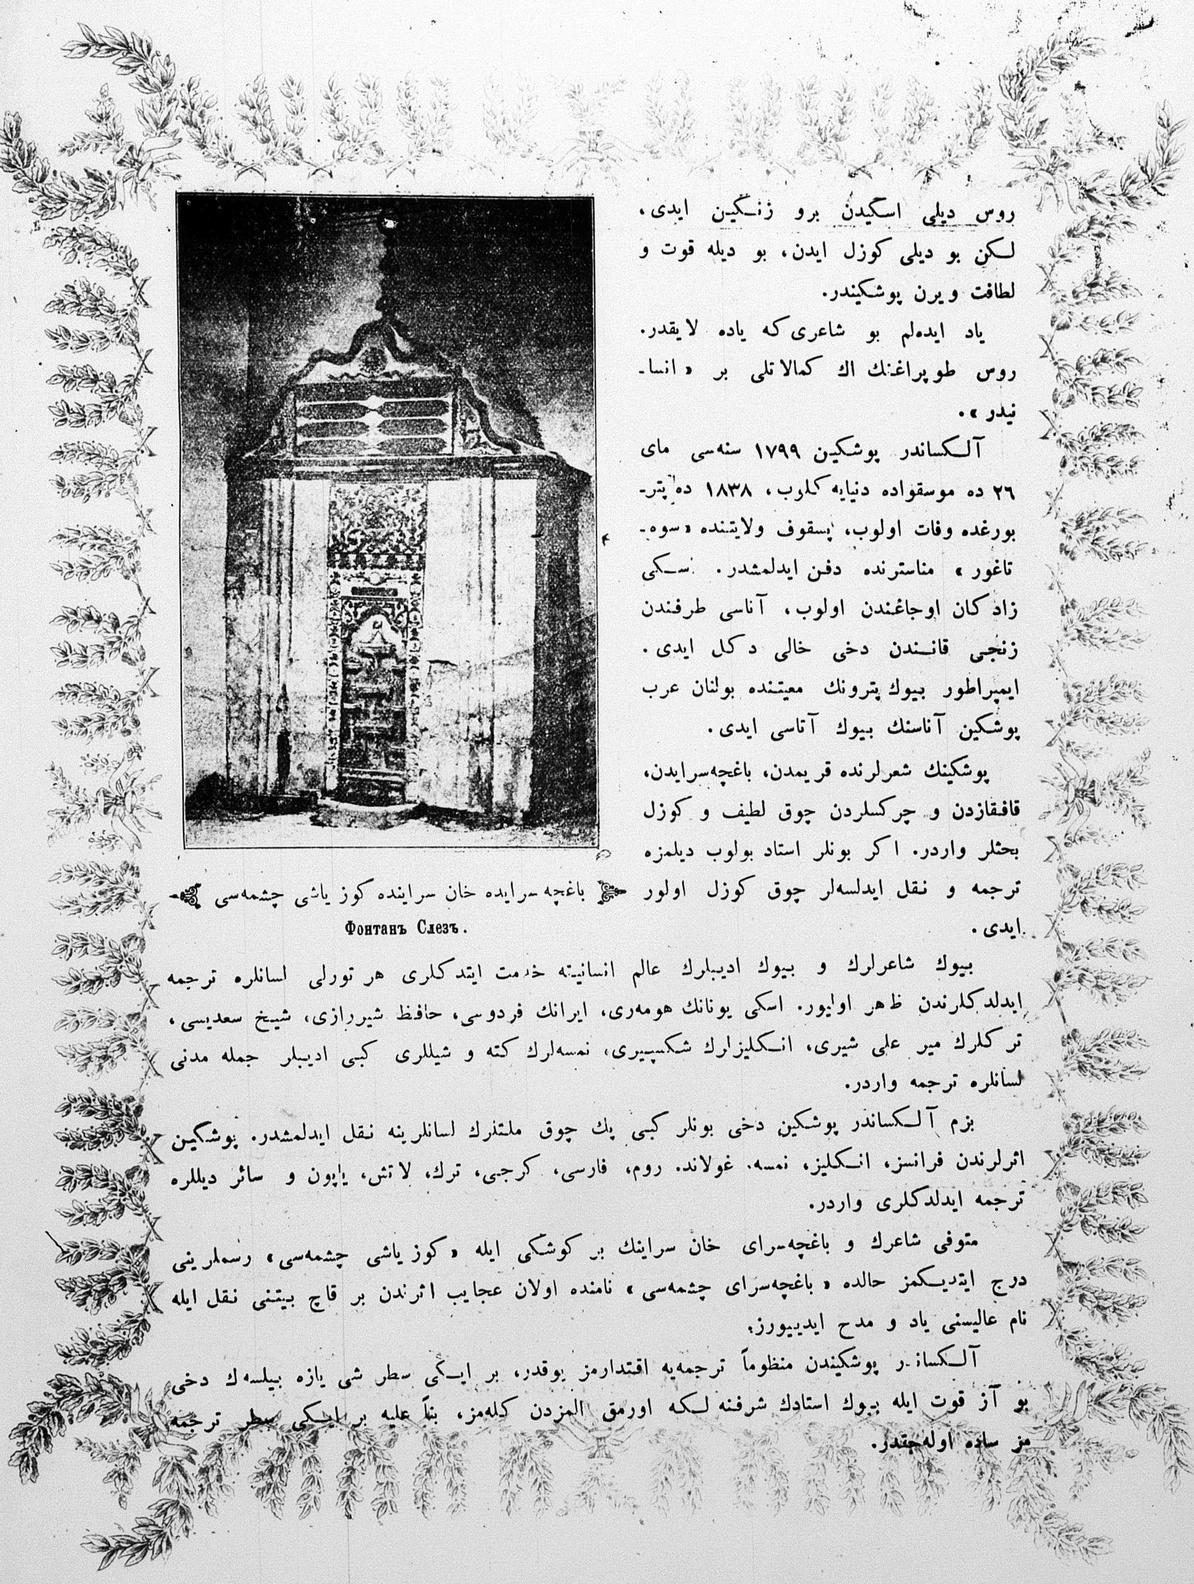 روس دیلی اسگیدن برو زنگین ایدی،
لکن بو دیلی کوزل ایدن، بو دیله قوت و
لطافت ویرن پوشکیندر.
یاد ایده‌لم بو شاعری که یاده لایقدر.
روس طوپراغنك اك کمالاتلی بر «انسا-
نیدر».
آلکساندر پوشکین ١٧٩٩ سنه‌سی مای
٢٦ ده موسقواده دنیایه کلوب، ١٨٣٨ ده پتر-
بورغده وفات اولوب، پسقوف ولایتنده «سوه-
تاغور» مناسترنده دفن ایدلمشدر. سکی
زادکان اوجاغندن اولوب، آناسی طرفندن
زنجی قانندن دخی خالی دکل ایدی.
ایمپراطور بیوك پترونك معیتنده بولنان عرب
پوشکین آناسنك بیوك آتاسی ایدی.
پوشکینك شعرلرنده قریمدن، باغچه‌سرایدن،
قافقازدن و چرکسلردن چوق لطیف و کوزل
بحثلر واردر. اکر بونلر استاد بولوب دیلمزه
ترجمه و نقل ایدلسه‌لر چوق کوزل اولور
ایدی.
باغچه سرایده خان سراینده کوز یاشی چشمه‌سی
Фонтанъ Слезъ.
بیوك شاعرلرك و بیوك ادیبلرك عالم انسانیته خدمت ایتدکلری هر تورلی لسانلره ترجمه
ایدلدکلرندن ظاهر اولیور. اسکی یونانك هومه‌ری، ایرانك فردوسی، حافظ شیرازی، شیخ سعدیسی،
ترکلرك میر علی شیری، انکلیزلرك شکسپیری، نمسه‌لرك کته و شیللری کبی ادیبلر جمله مدنی
لسانلره ترجمه واردر.
بزم آلکساندر پوشکین دخی بونلر کبی پك چوق ملتلرك لسانلرینه نقل ایدلمشدر. پوشکین
اثرلرندن فرانسز، انکلیز، نمسه، غولاند، روم، فارسی، کرجی، ترك، لاتش، یاپون و سائر دیللره
ترجمه ایدلدکلری واردر.
متوفی شاعرك و باغچه‌سرای خان سراینك بر کوشکی ایله «کوز یاشی چشمه‌سی» رسملرینی
درج ایتدیکمز حالده «باغچه‌سرای چشمه‌سی» نامنده اولان عجایب اثرندن بر قاچ بیتنی نقل ایله
نام عالیسنی یاد و مدح ایدییورز.
آلکساندر پوشکیندن منظوماً ترجمه‌یه اقتدارمز یوقدر، بر ایکی سطر شی یازه بیلسه‌ك دخی
بو آز قوت ایله بیوك استادك شرفنه لکه اورمق المزدن کله‌مز، بناً علیه بر ایکی سطر ترجمه
مز ساده اوله‌جقدر.